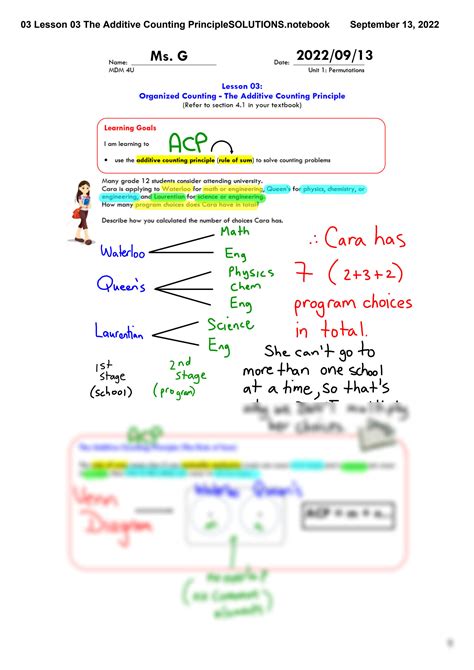 03 Lesson 03 The Additive Counting PrincipleSOLUTIONS.notebook September 13, 2022
Name: Ms. G Date: 2022/09/13
MDM 4U Unit 1: Permutations
Lesson 03:
Organized Counting - The Additive Counting Principle
(Refer to section 4.1 in your textbook)
Learning Goals
I am learning to ACP
• use the additive counting principle (rule of sum) to solve counting problems
Many grade 12 students consider attending university.
Cara is applying to Waterloo for math or engineering, Queen's for physics, chemistry, or
engineering, and Laurentian for science or engineering.
How many program choices does Cara have in total?
Describe how you calculated the number of choices Cara has.
Waterloo
Math
Eng
Queen's
Physics
Chem
Eng
Laurentian
Science
Eng
1st
stage
(school)
2nd
stage
(program)
∴ Cara has
7 (2+3+2)
program choices
in total.
She can't go to
more than one school
at a time, so that's
why we
her choices.
ACP
The Additive Counting Principle (The Rule of Sum)
Venn
Diagram
Waterloo Queen's
ACP = m + n
no overlap
(no common
elements)